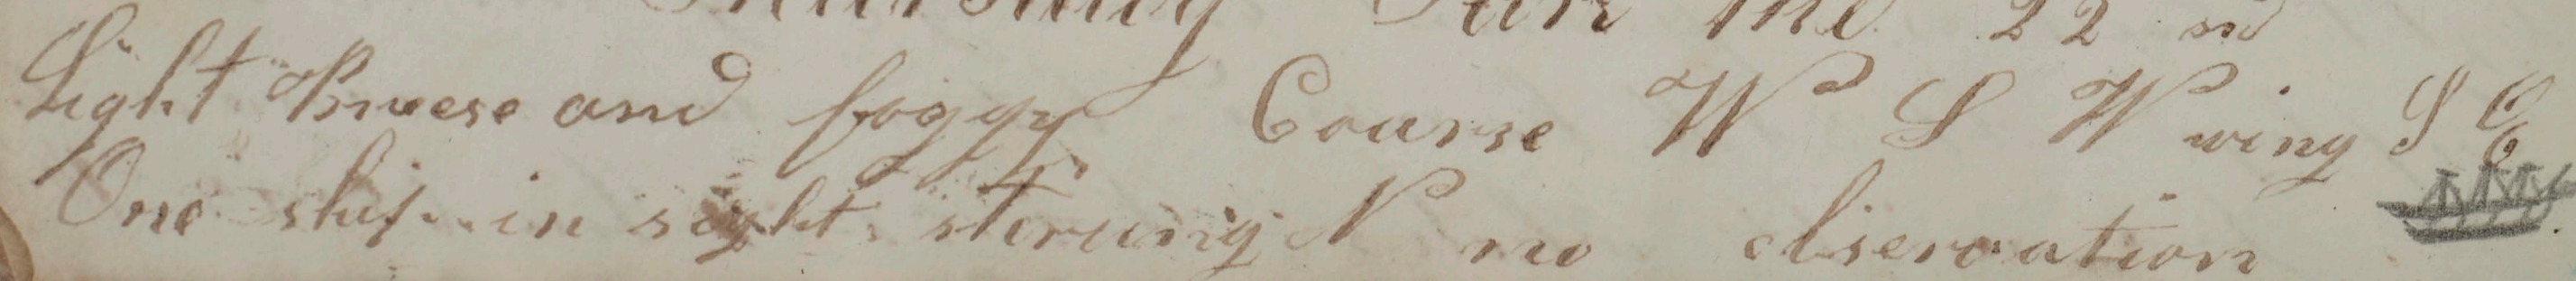 Thursday Jan the 22 nd
Light Breese and foggy Course W S W wing S E
One ship in sight steruing N no observation